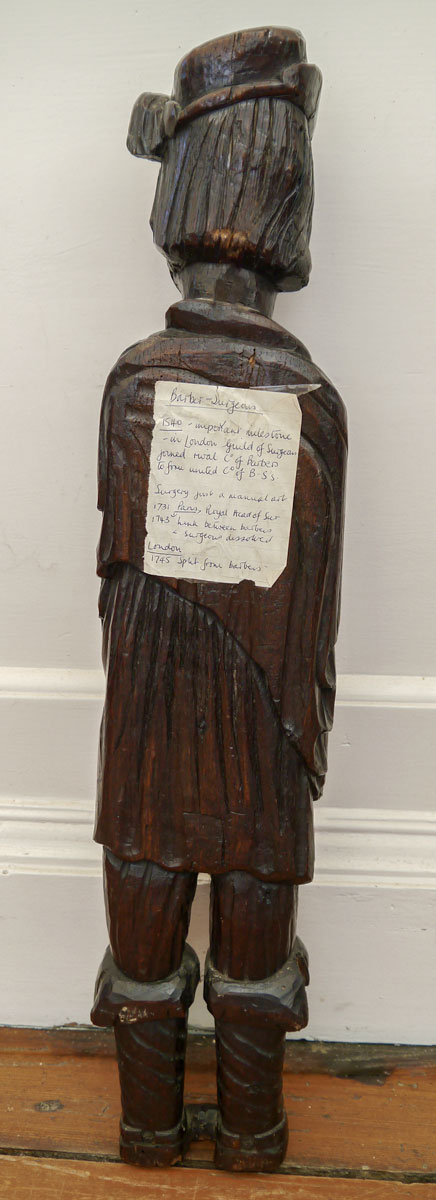 Barber-Surgeons
1540 - important milestone
- in London Guild of Surgeon
joined rival Co of Barbers
to form united Co of B-S's
Surgery just a manual art
1731 Paris, Royal Acad of Sur
1743 Link between barbers
- surgeons dissolved
London
1745 split from barbers